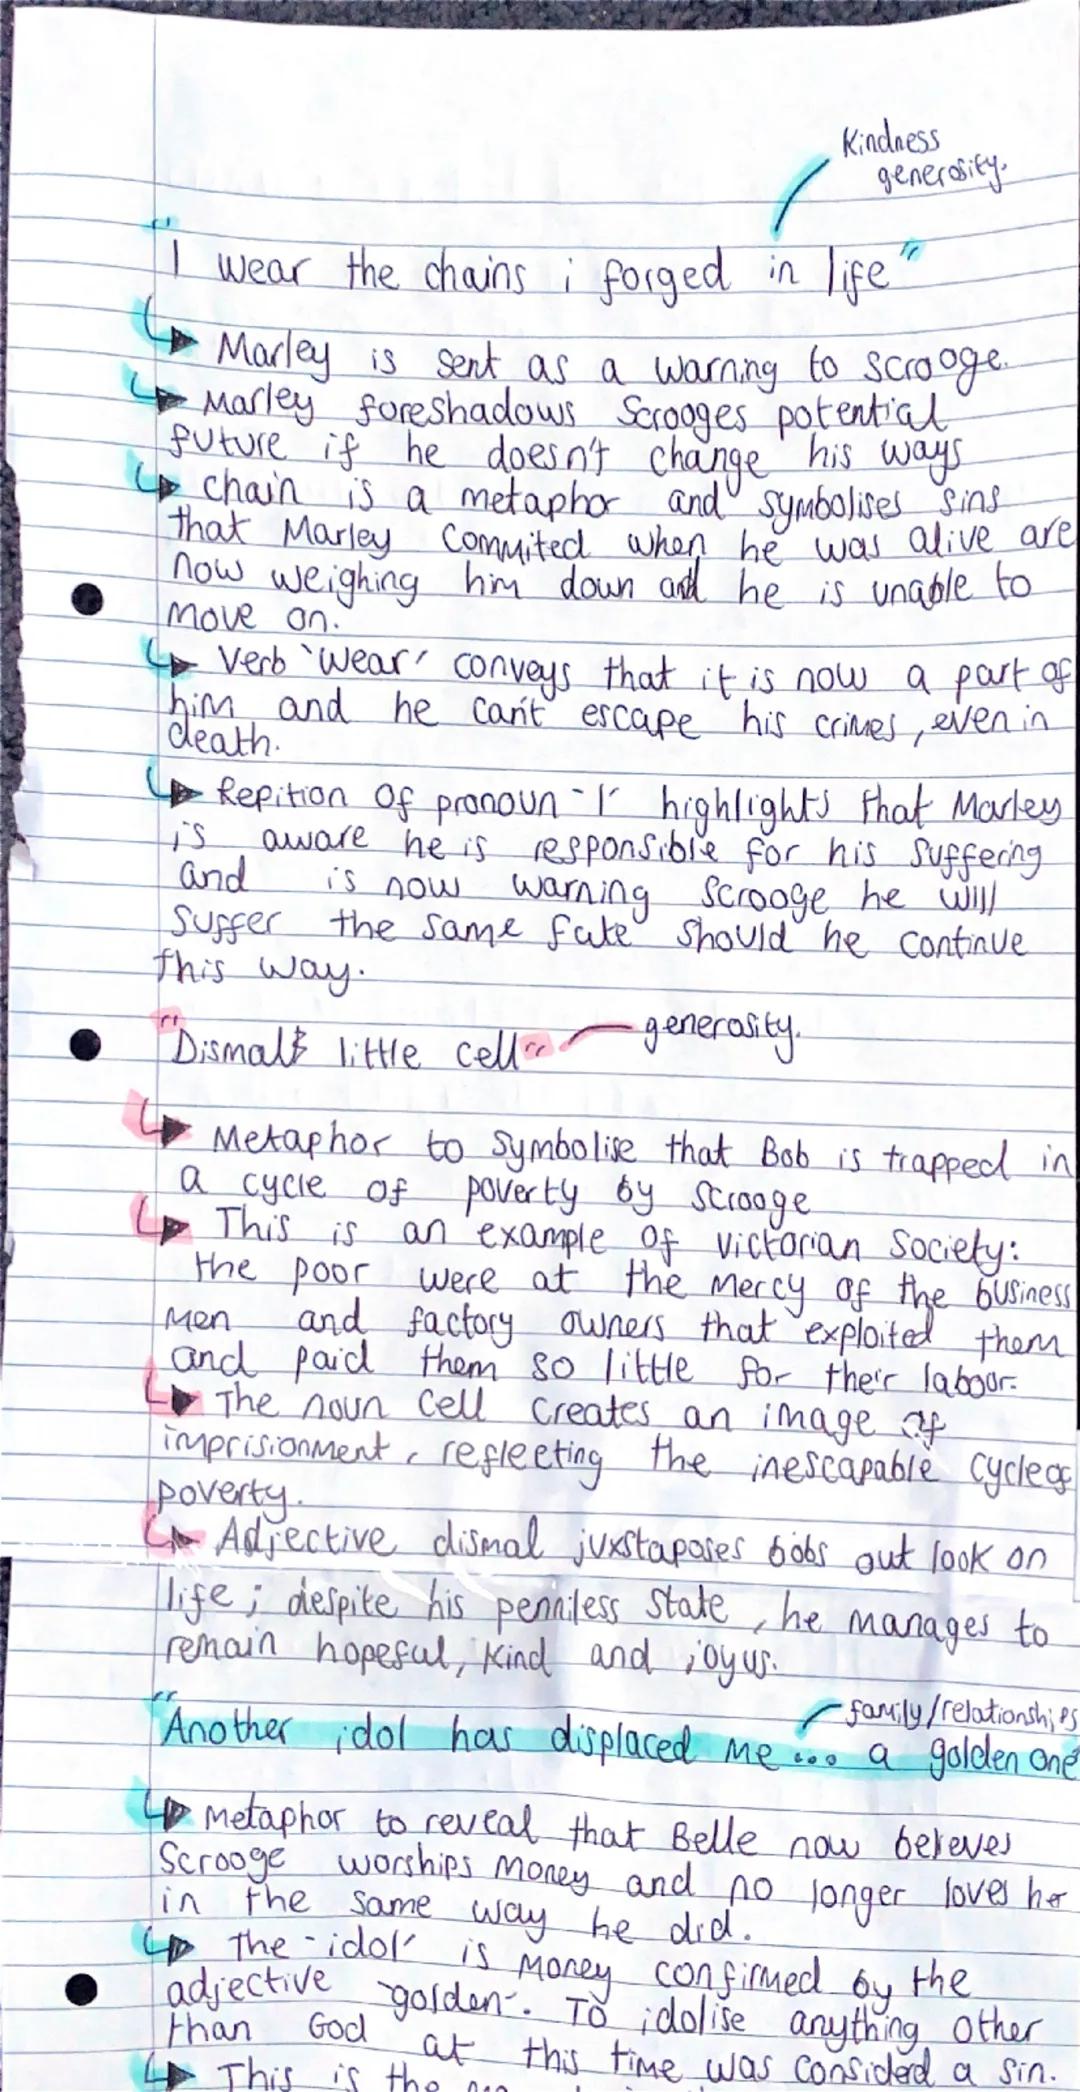 Kindness
generosity.
"I wear the chains i forged in life"
Marley is sent as a warning to scrooge.
Marley foreshadows Scrooges potential
future if he doesn't change his ways
chain is a metaphor and symbolises sins
that Marley Commited when he was alive are
now weighing him down and he is unable to
move on.
Verb 'wear' conveys that it is now a part of
him and he can't escape his crimes, even in
death.
Repition of pronoun 'I' highlights that Marley
is aware he is responsible for his suffering
and is now warning Scrooge he will
suffer the same fate should he continue
this way.
"Dismal little cell" generosity.
Metaphor to symbolise that Bob is trapped in
a cycle of poverty by scrooge
This is an example of victorian society:
the poor were at the mercy of the business
men and factory owners that exploited them
and paid them so little for their labour.
The noun cell creates an image of
imprisionment, reflecting the inescapable cycle of
poverty.
Adjective dismal juxstaposes bobs out look on
life; despite his penniless state, he manages to
remain hopeful, kind and joyus.
family/relationships
"Another idol has displaced me... a golden one
Metaphor to reveal that Belle now beleves
Scrooge worships money and no longer loves her
in the same way he did.
the 'idol' is money confirmed by the
adjective 'golden'. To idolise anything other
than God at this time was considerd a sin.
This is the